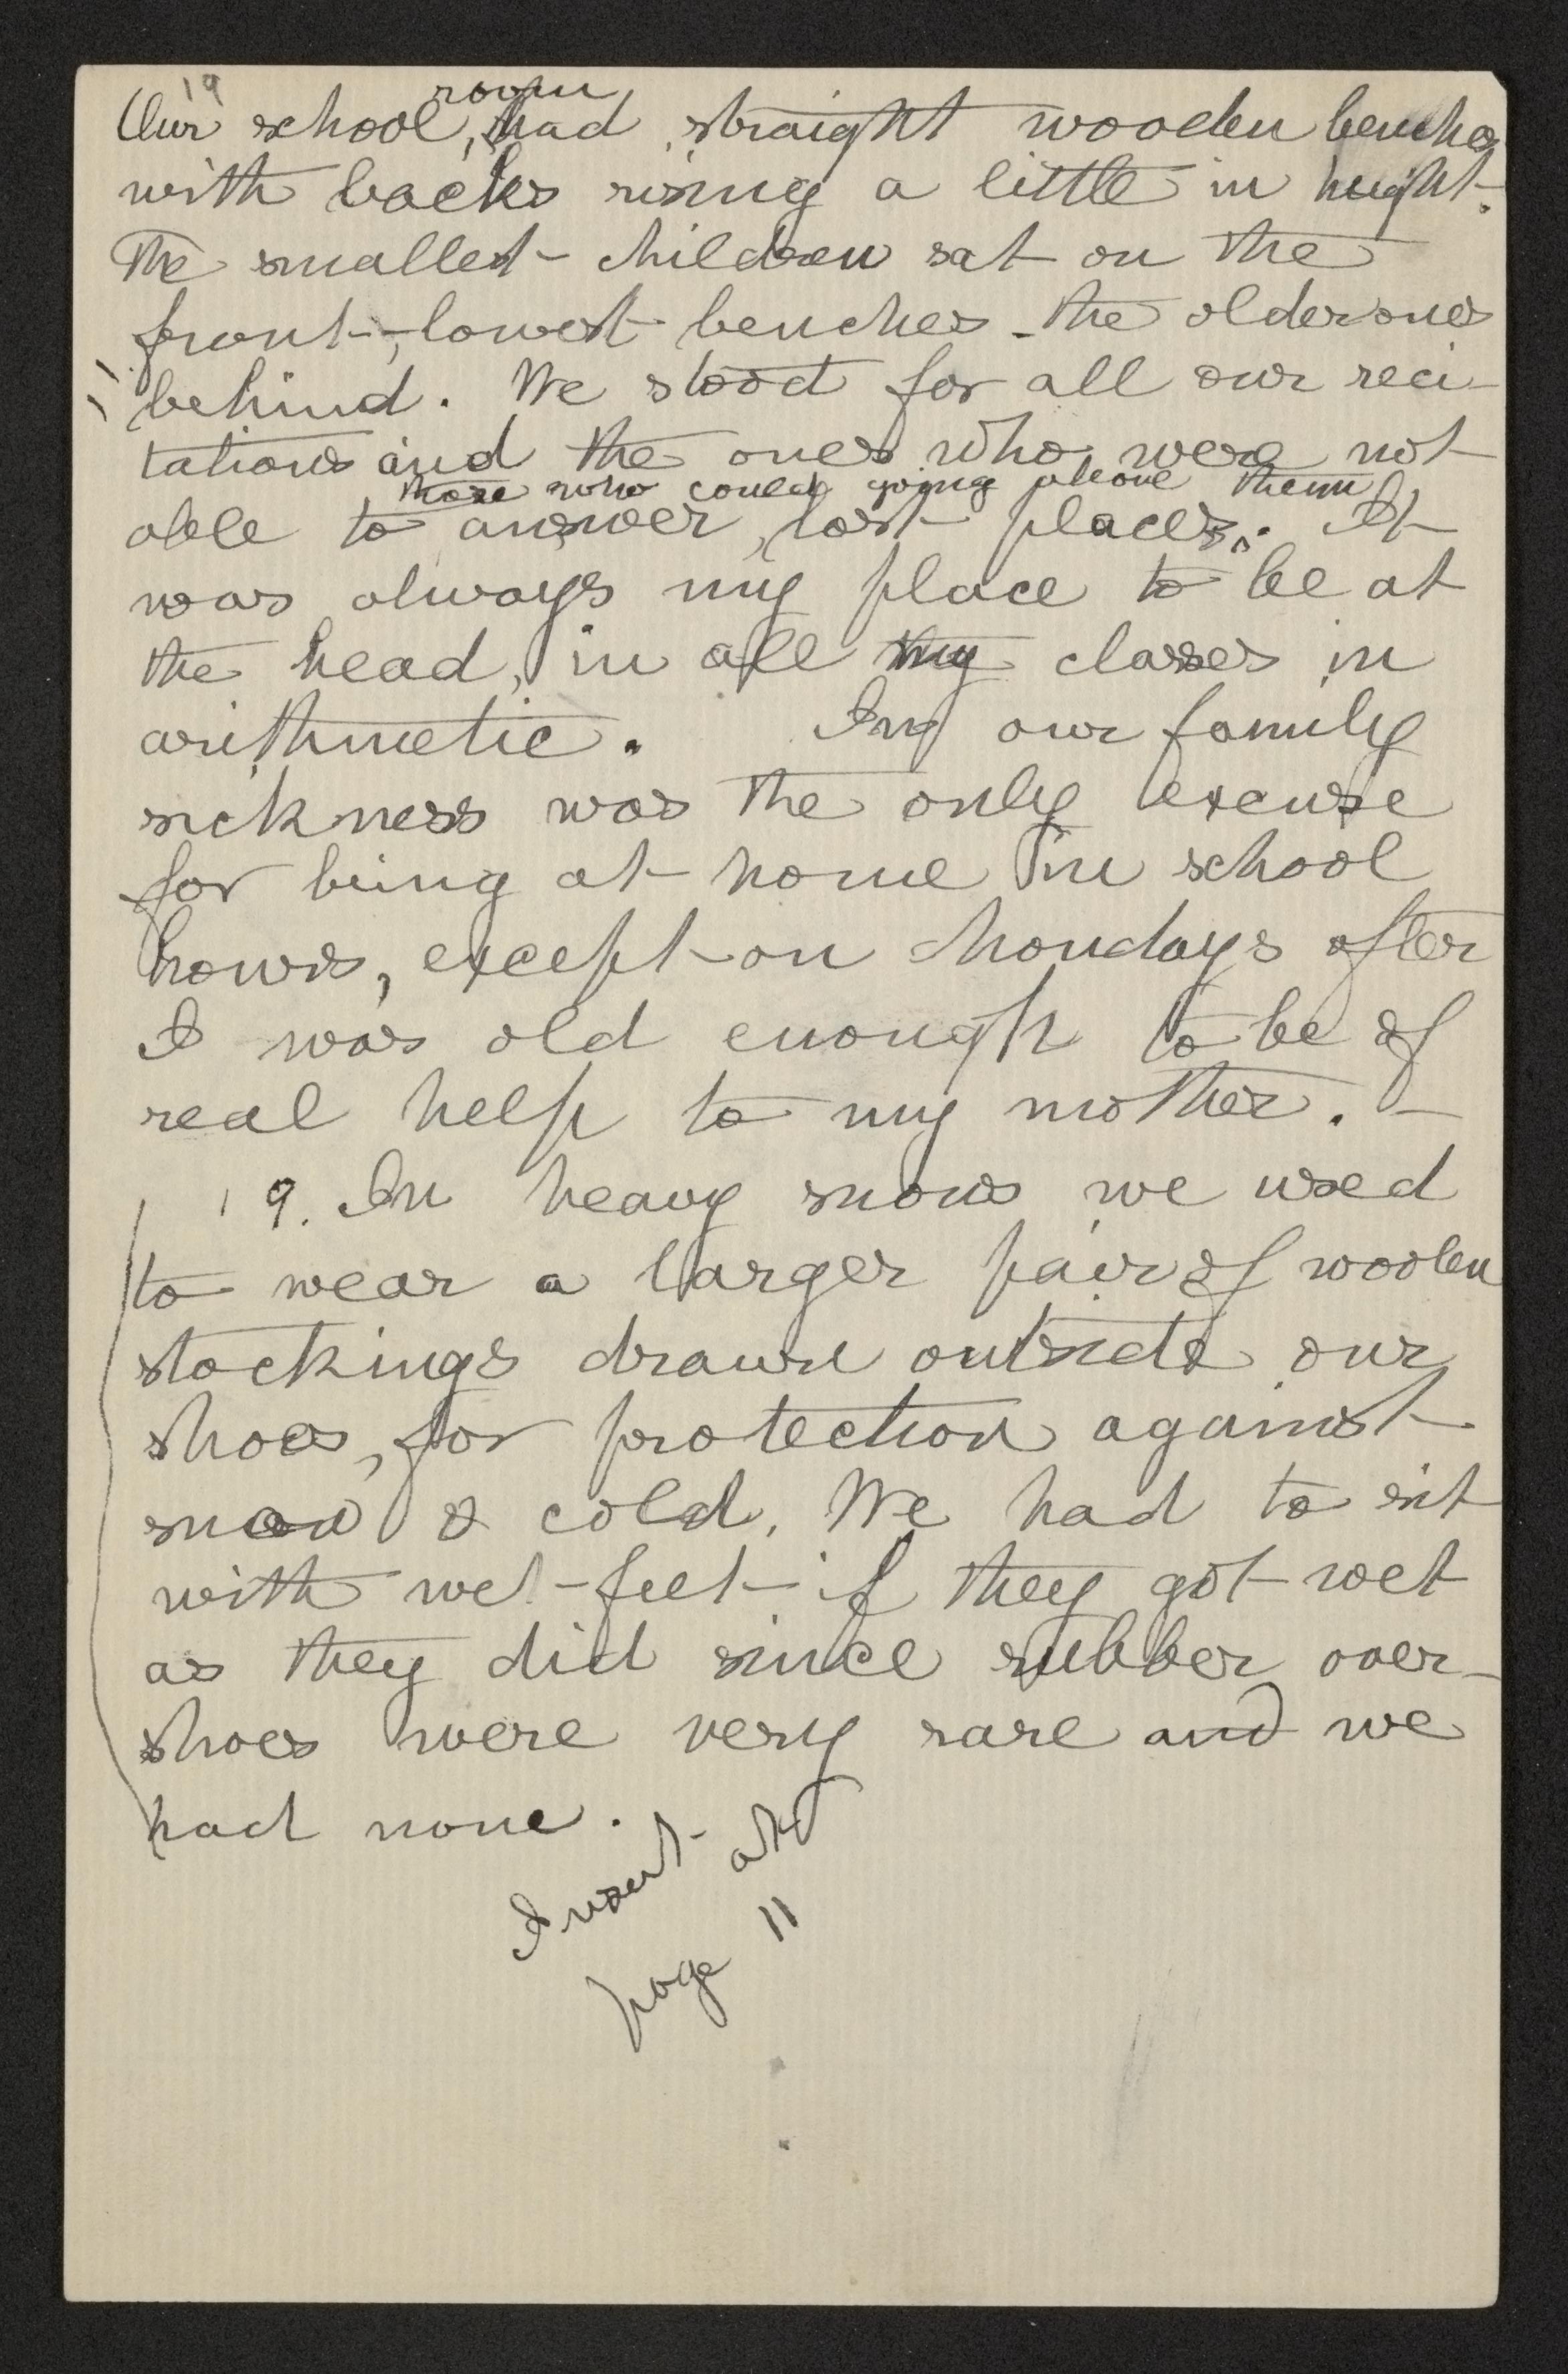 19
room
Our school, had straight wooden benches
with backs rising a little in height.
The smallest children sat on the
front, lowest benches - the older ones
behind. We stood for all our reci-
tations and the ones who were not
those who could going above them
able to answer, lost places. It
was always my place to be at
the head, in all my classes in
arithmetic. In our family
sickness was the only excuse
for being at home in school
hours, except on Mondays after
I was old enough to be of
real help to my mother. -
19. In heavy snows we used
to wear a larger pair of woolen
stockings drawn outside our
shoes, for protection against
snow & cold. We had to sit
with wet feet if they got wet
as they did since rubber over-
shoes were very rare and we
had none.
Insert at
page 11